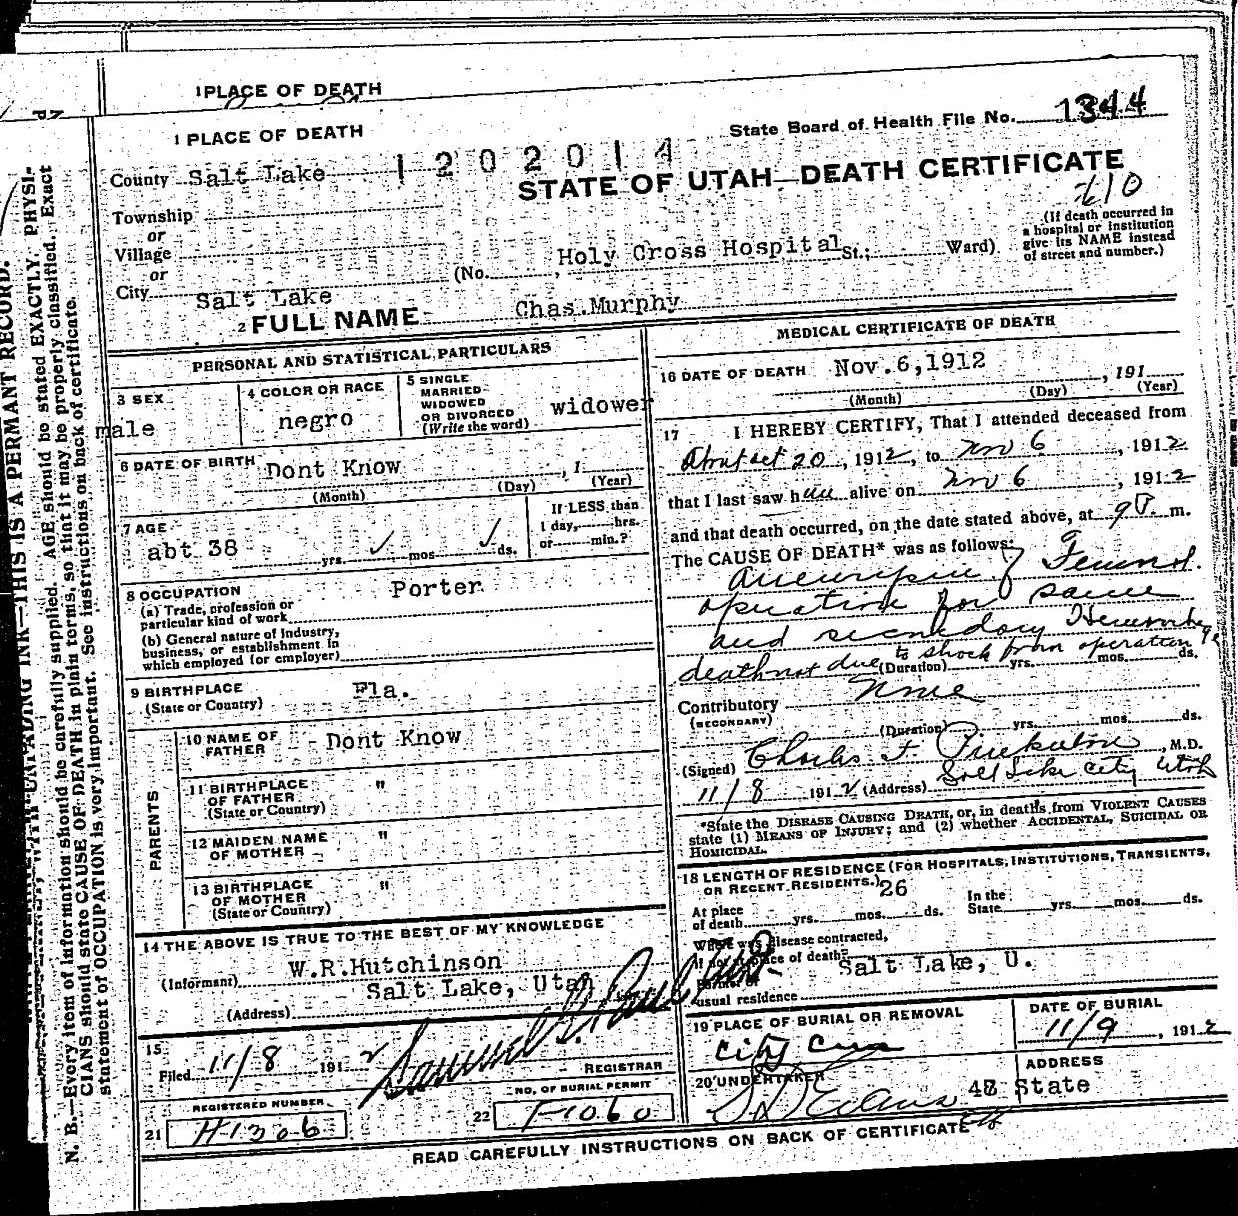 1 PLACE OF DEATH
1 PLACE OF DEATH
State Board of Health File No. 1344
County Salt Lake
1202014
STATE OF UTAH—DEATH CERTIFICATE
210
Township
or
Village
or
City Salt Lake
(No. , Holy Cross Hospital St.; Ward)
(If death occurred in
a hospital or institution
give its NAME instead
of street and number.)
2 FULL NAME Chas. Murphy
PERSONAL AND STATISTICAL PARTICULARS
3 SEX
male
4 COLOR OR RACE
negro
5 SINGLE
MARRIED
WIDOWED
OR DIVORCED
(Write the word)
widower
6 DATE OF BIRTH Dont Know , 1
(Month) (Day) (Year)
7 AGE
abt 38 yrs. mos. ds.
If LESS than
1 day, hrs.
or min.?
8 OCCUPATION Porter
(a) Trade, profession or
particular kind of work
(b) General nature of industry,
business, or establishment in
which employed (or employer)
9 BIRTHPLACE
(State or Country)
Fla.
PARENTS
10 NAME OF
FATHER
Dont Know
11 BIRTHPLACE
OF FATHER
(State or Country)
"
12 MAIDEN NAME
OF MOTHER
"
13 BIRTHPLACE
OF MOTHER
(State or Country)
"
14 THE ABOVE IS TRUE TO THE BEST OF MY KNOWLEDGE
(Informant) W.R.Hutchinson
(Address) Salt Lake, Utah
15
Filed 11/8 1912 Samuel G. Paul
REGISTRAR
REGISTERED NUMBER
21 H1306
NO. OF BURIAL PERMIT
22 F1060
MEDICAL CERTIFICATE OF DEATH
16 DATE OF DEATH Nov.6,1912 , 191
(Month) (Day) (Year)
17 I HEREBY CERTIFY, That I attended deceased from
About Oct 20, 1912, to Nov 6, 1912
that I last saw him alive on Nov 6, 1912
and that death occurred, on the date stated above, at 9 P. m.
The CAUSE OF DEATH* was as follows:
Aneurism of Femoral.
operation for same
and secondary Hemorrhage
death not due to shock from operation
(Duration) yrs. mos. ds.
Contributory None
(SECONDARY)
(Duration) yrs. mos. ds.
(Signed) Charles F. Pinkerton, M.D.
11/8 1912 (Address) Salt Lake City Utah
*State the DISEASE CAUSING DEATH, or, in deaths from VIOLENT CAUSES
state (1) MEANS OF INJURY; and (2) whether ACCIDENTAL, SUICIDAL OR
HOMICIDAL.
18 LENGTH OF RESIDENCE (FOR HOSPITALS, INSTITUTIONS, TRANSIENTS,
OR RECENT RESIDENTS.)
At place
of death yrs. mos. 26 ds.
In the
State yrs. mos. ds.
Where was disease contracted,
if not at place of death?
Former or
usual residence Salt Lake, U.
19 PLACE OF BURIAL OR REMOVAL
City Cem
DATE OF BURIAL
11/9, 1912
20 UNDERTAKER
S D Evans
ADDRESS
48 State
READ CAREFULLY INSTRUCTIONS ON BACK OF CERTIFICATE
THIS IS A PERMANT RECORD.
N. B.—Every item of information should be carefully supplied. AGE should be stated EXACTLY. PHYSI-
CIANS should state CAUSE OF DEATH in plain terms, so that it may be properly classified. Exact
statement of OCCUPATION is very important. See instructions on back of certificate.